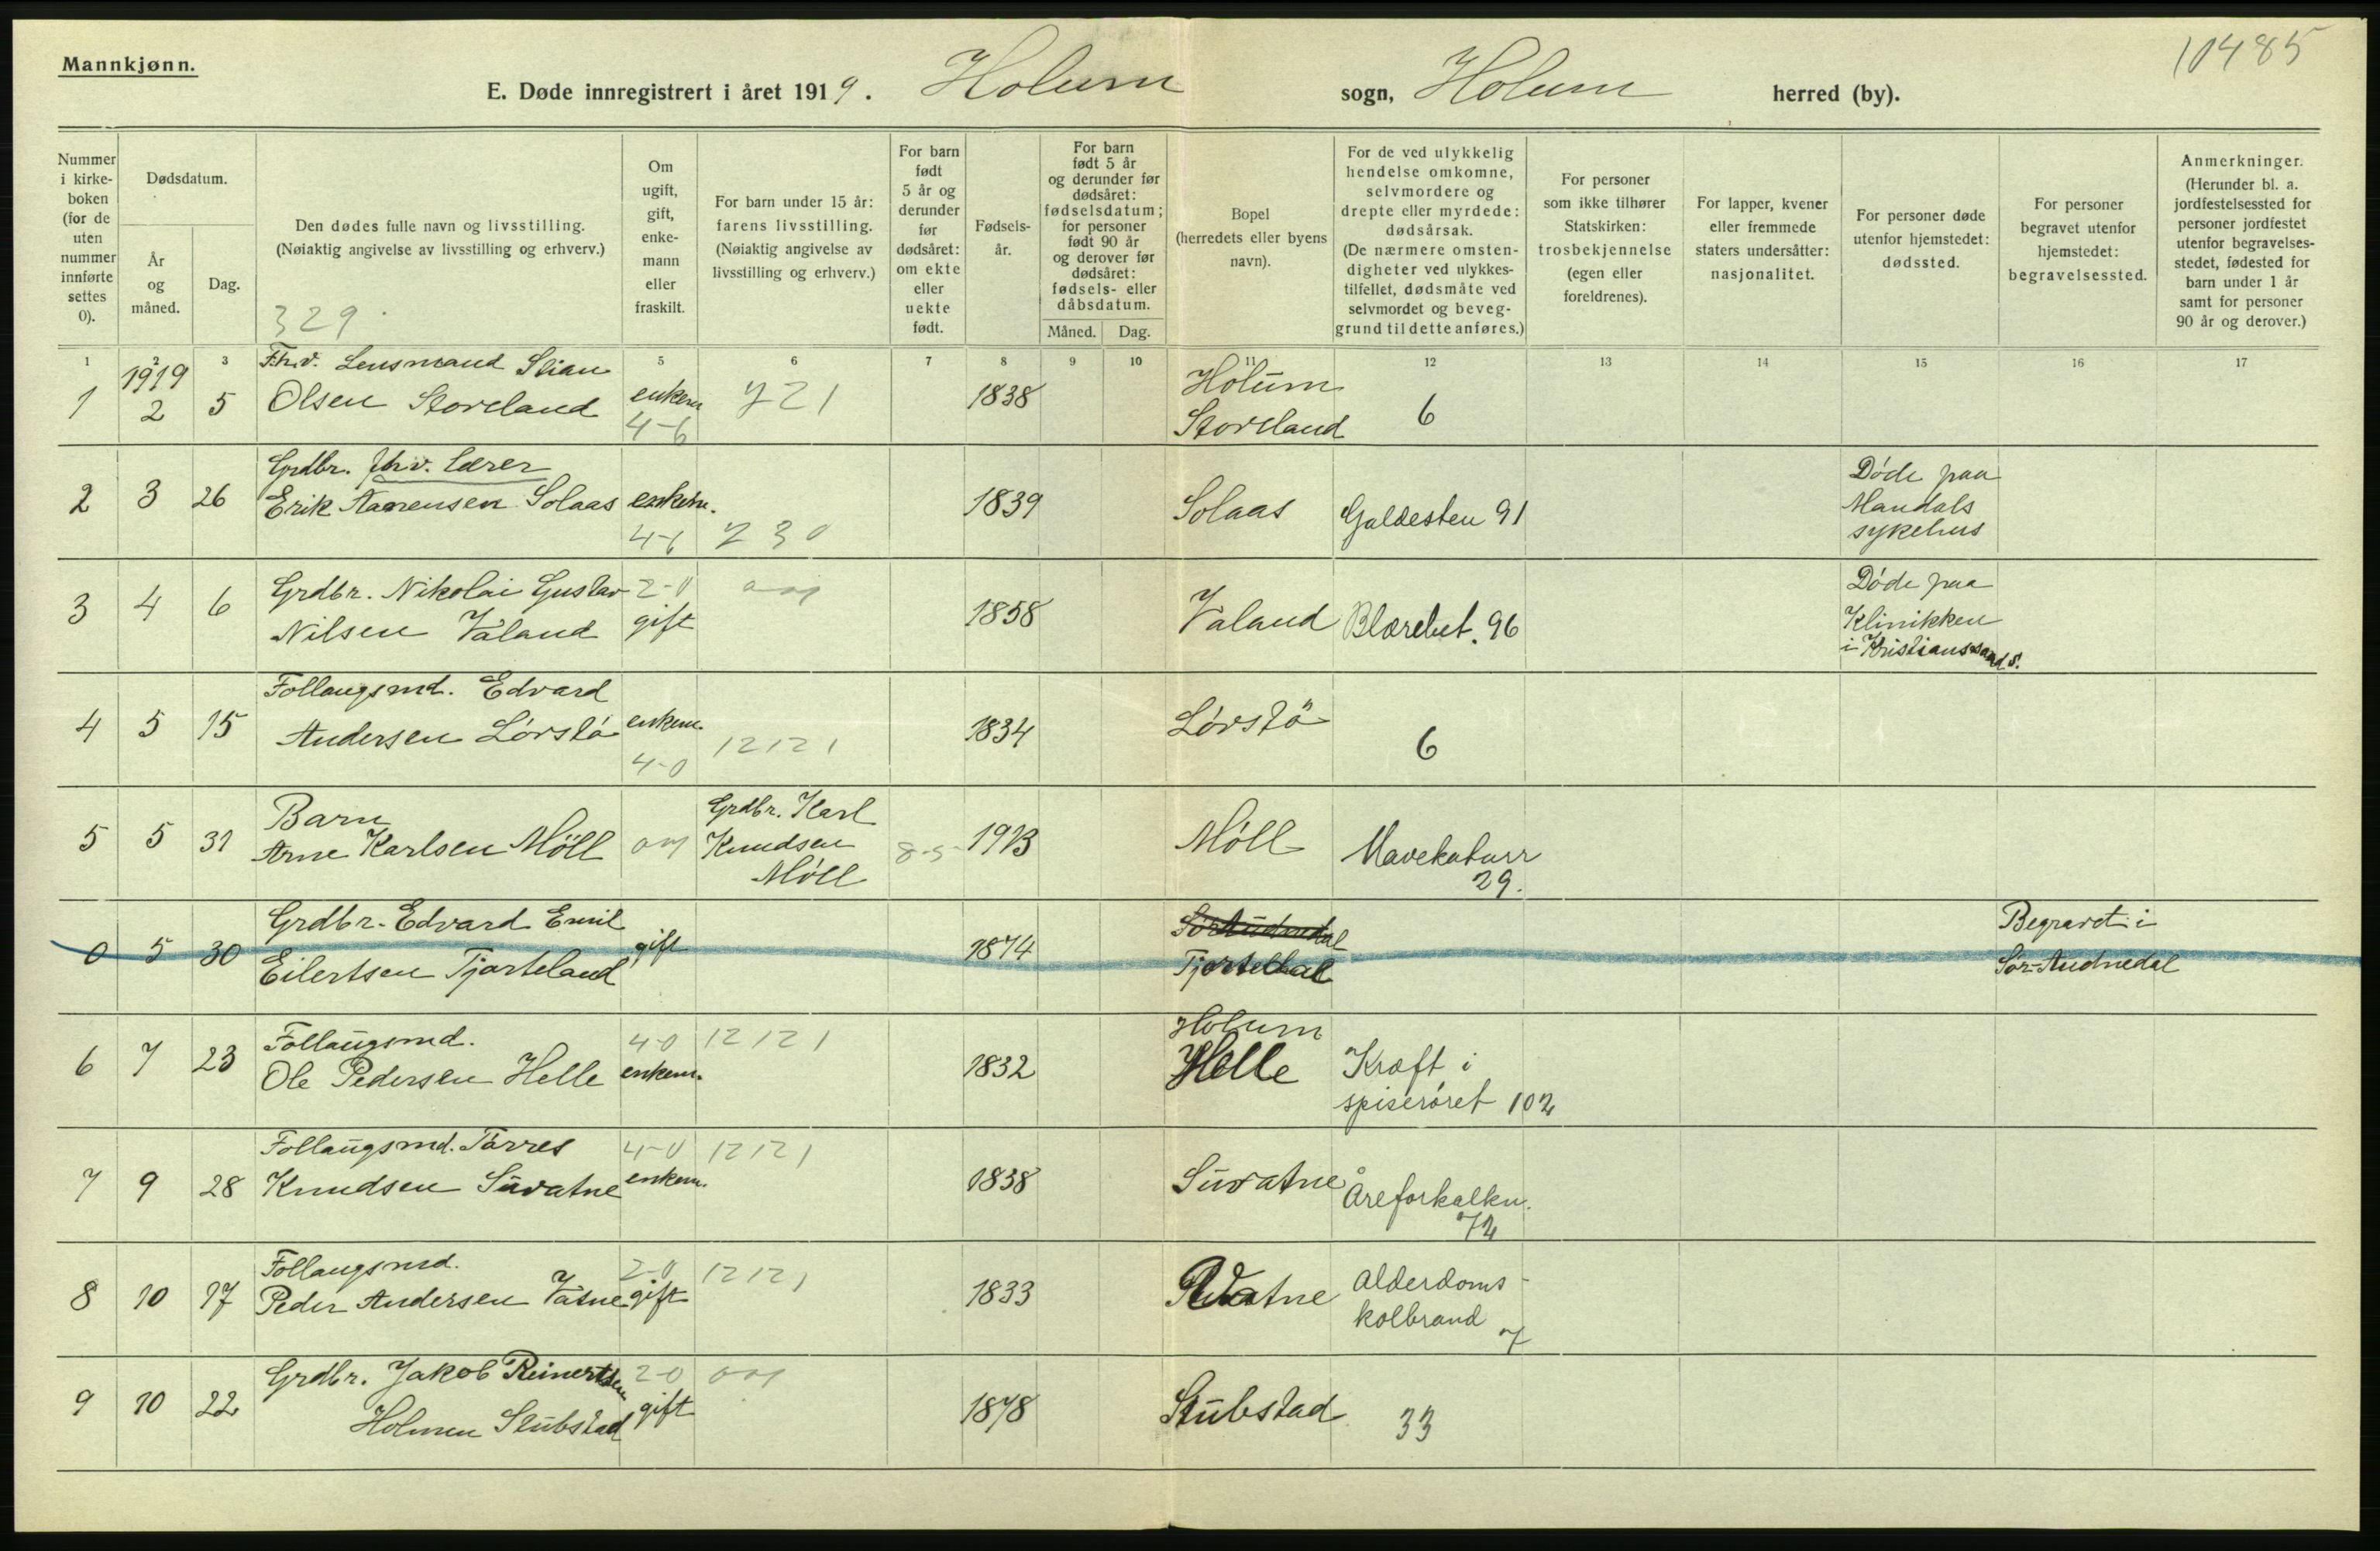 10485
Mannkjønn.
E. Døde innregistrert i året 1919. Holum sogn, Holum herred (by).
Nummer i kirke- boken (for de uten nummer innførte settes 0).
Dødsdatum.
År og måned.
Dag.
Den dødes fulle navn og livsstilling.
(Nøiaktig angivelse av livsstilling og erhverv.)
329
Om ugift, gift, enke- mann eller fraskilt.
For barn under 15 år: farens livsstilling. (Nøiaktig angivelse av livsstilling og erhverv.)
For barn født 5 år og derunder før dødsåret: om ekte eller uekte født.
Fødsels- år.
For barn født 5 år og derunder før dødsåret: fødselsdatum; for personer født 90 år og derover før dødsåret: fødsels- eller dåbsdatum.
Måned. Dag.
Bopel (herredets eller byens navn).
For de ved ulykkelig hendelse omkomne, selvmordere og drepte eller myrdede: dødsårsak. (De nærmere omsten- digheter ved ulykkes- tilfellet, dødsmåte ved selvmordet og beveg- grund til dette anføres.)
For personer som ikke tilhører Statskirken: trosbekjennelse (egen eller foreldrenes).
For lapper, kvener eller fremmede staters undersåtter: nasjonalitet.
For personer døde utenfor hjemstedet: dødssted.
For personer begravet utenfor hjemstedet: begravelsessted.
Anmerkninger. (Herunder bl. a. jordfestelsessted for personer jordfestet utenfor begravelses- stedet, fødested for barn under 1 år samt for personer 90 år og derover.)
1 2 3 5 6 7 8 9 10 11 12 13 14 15 16 17
1919
Fhv. Lensmand Stian
1 2 5 Olsen Storeland enkem 721 1838 Holum
4-6 Storeland 6
Grdbr. fhv. lærer
2 3 26 Erik Aanensen Solaas enkem. 1839 Solaas Galdesten 91 Døde paa
Mandals
4-6 230 sykehus
3 4 6 Grdbr. Nikolai Gustav 2-0
Nilsen Valand gift 1858 Valand Blærebet. 96 Døde paa
Klinikken
i Kristianssand S.
Follaugsmd. Edvard
4 5 15 Andersen Lörstö enkem. 12121 1834 Lörstö
4-0 6
Barn Grdbr. Karl
5 5 31 Arne Karlsen Möll Knudsen 8-5 1913 Möll Mavekatarr
Möll 29.
Grdbr. Edvard Emil Begravet i
0 5 30 Eilertsen Tjorteland gift 1874 Sør-Audnedal
6 7 23 Follaugsmd. 4-0 12121 Holum
Ole Pedersen Helle enkem. 1832 Helle Kræft i
spiserøret 102
Follaugsmd. Tarres 4-0 12121
7 9 28 Knudsen Suvatne enkem. 1838 Suvatne Åreforkalkn.
72
Follaugsmd. 2-0 12121
8 10 17 Peder Andersen Vatne gift 1833 Vatne alderdoms-
kolbrand 7
Grdbr. Jakob Reinertsen 2-0
9 10 22 Holmen Stubstad gift 1878 Stubstad 33